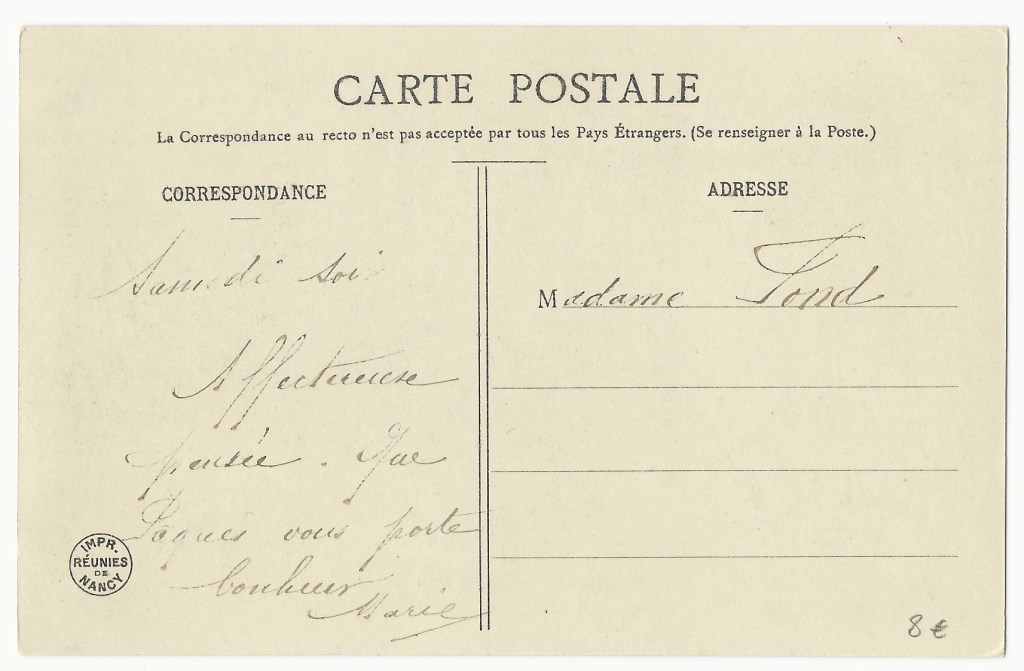 CARTE POSTALE
La Correspondance au recto n'est pas acceptée par tous les Pays Étrangers. (Se renseigner à la Poste.)
CORRESPONDANCE
Samedi soir
Affectueuse
pensée. Que
Pâques vous porte
bonheur
Marie
IMPR.
RÉUNIES
DE
NANCY
ADRESSE
Madame Fond
8 €